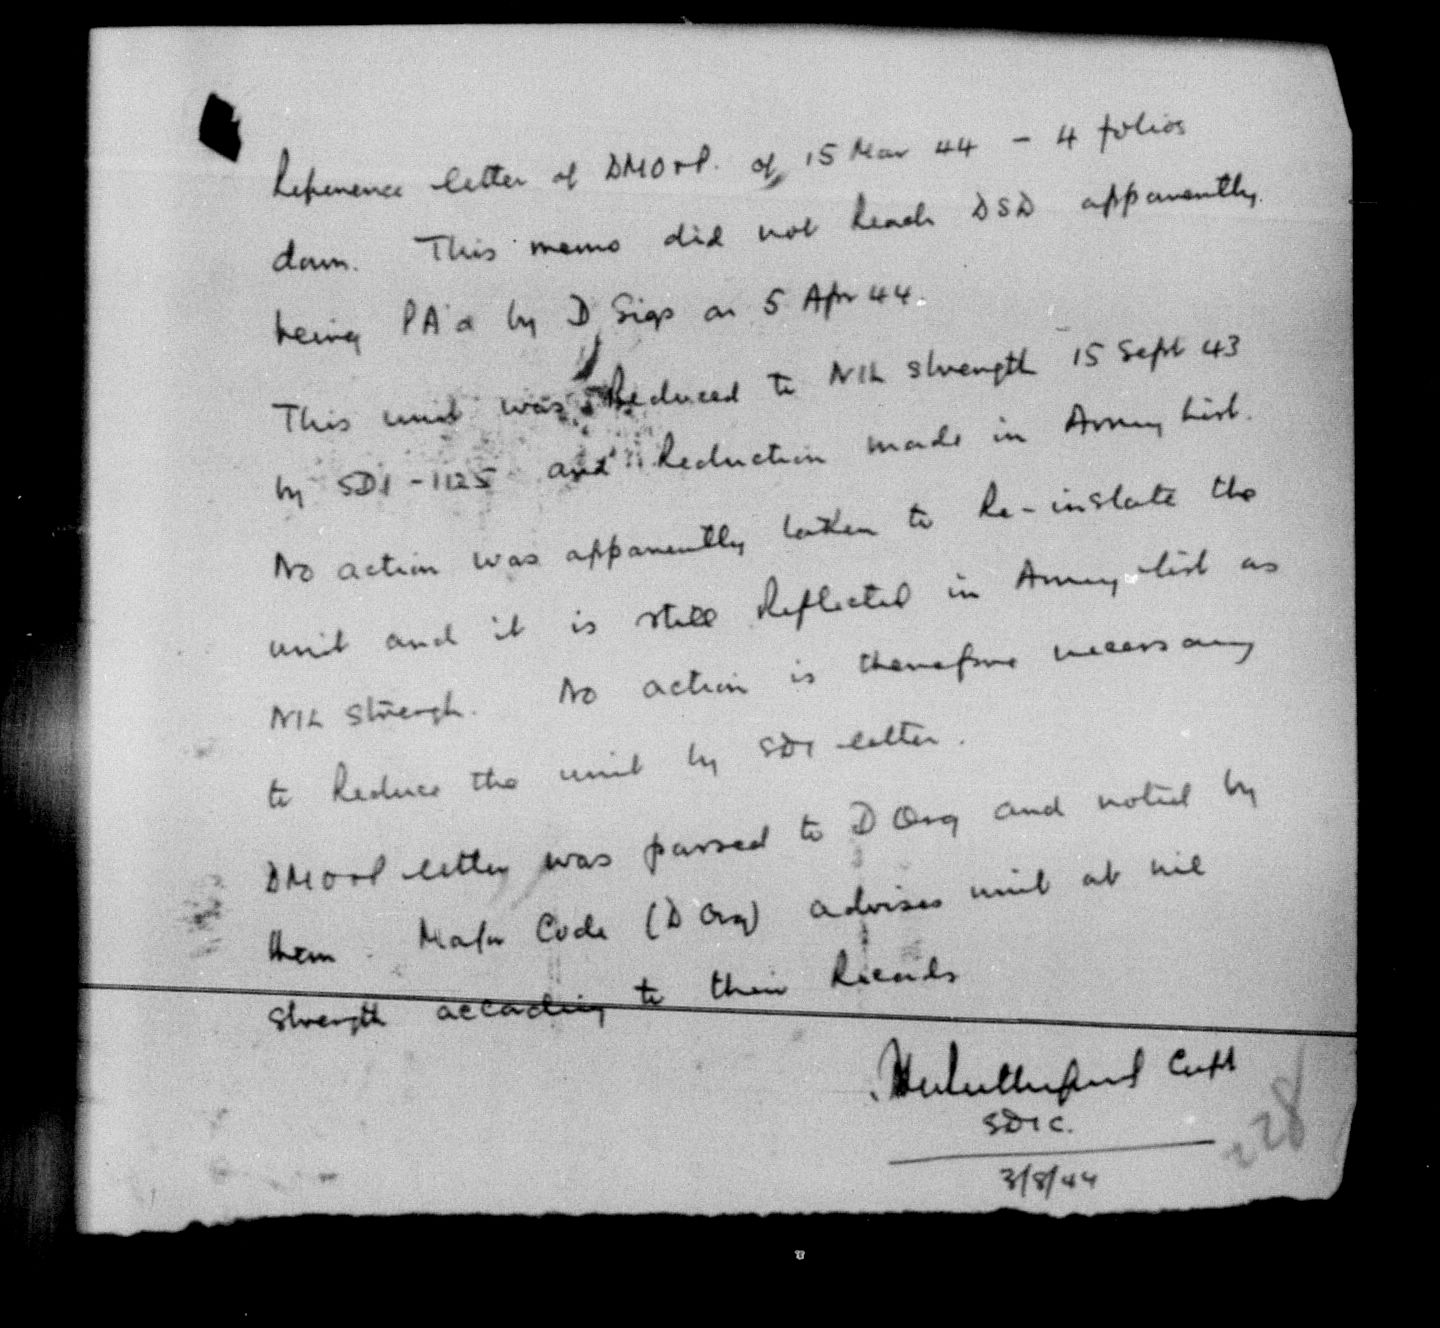 Reference letter of DMO&P. of 15 Mar 44 - 4 folios
down. This memo did not reach DSD apparently
being PA'd by D Sigs on 5 Apr 44.
This unit was reduced to NIL strength 15 Sept 43
by SD1-1125 and reduction made in Army List.
No action was apparently taken to re-instate the
unit and it is still reflected in Army list as
NIL strength. No action is therefore necessary
to reduce the unit by SD1 letter.
DMO&P letter was passed to D Org and noted by
them. Major Code (D Org) advises unit at nil
strength according to their records
Capt
SD1C.
3/8/44
228